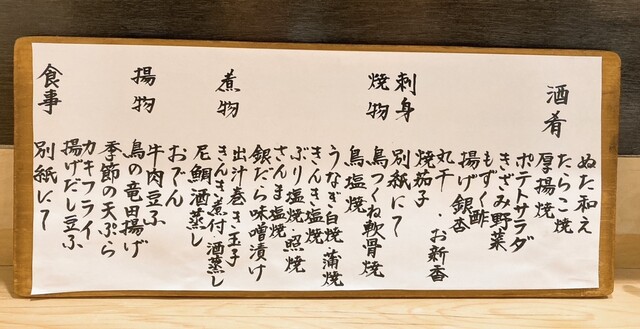 酒肴
ぬた和え
たらこ焼
厚揚焼
ポテトサラダ
きざみ野菜
もずく酢
揚げ銀杏
丸干・お新香
焼茄子
刺身
別紙にて
焼物
鳥つくね軟骨焼
鳥塩焼
うなぎ白焼・蒲焼
きんき塩焼
ぶり塩焼・照焼
さんま塩焼
銀だら味噌漬け
煮物
出汁巻き玉子
きんき煮付・酒蒸し
尼鯛酒蒸し
おでん
牛肉豆ふ
揚物
鳥の竜田揚げ
季節の天ぷら
カキフライ
揚げだし豆ふ
食事
別紙にて